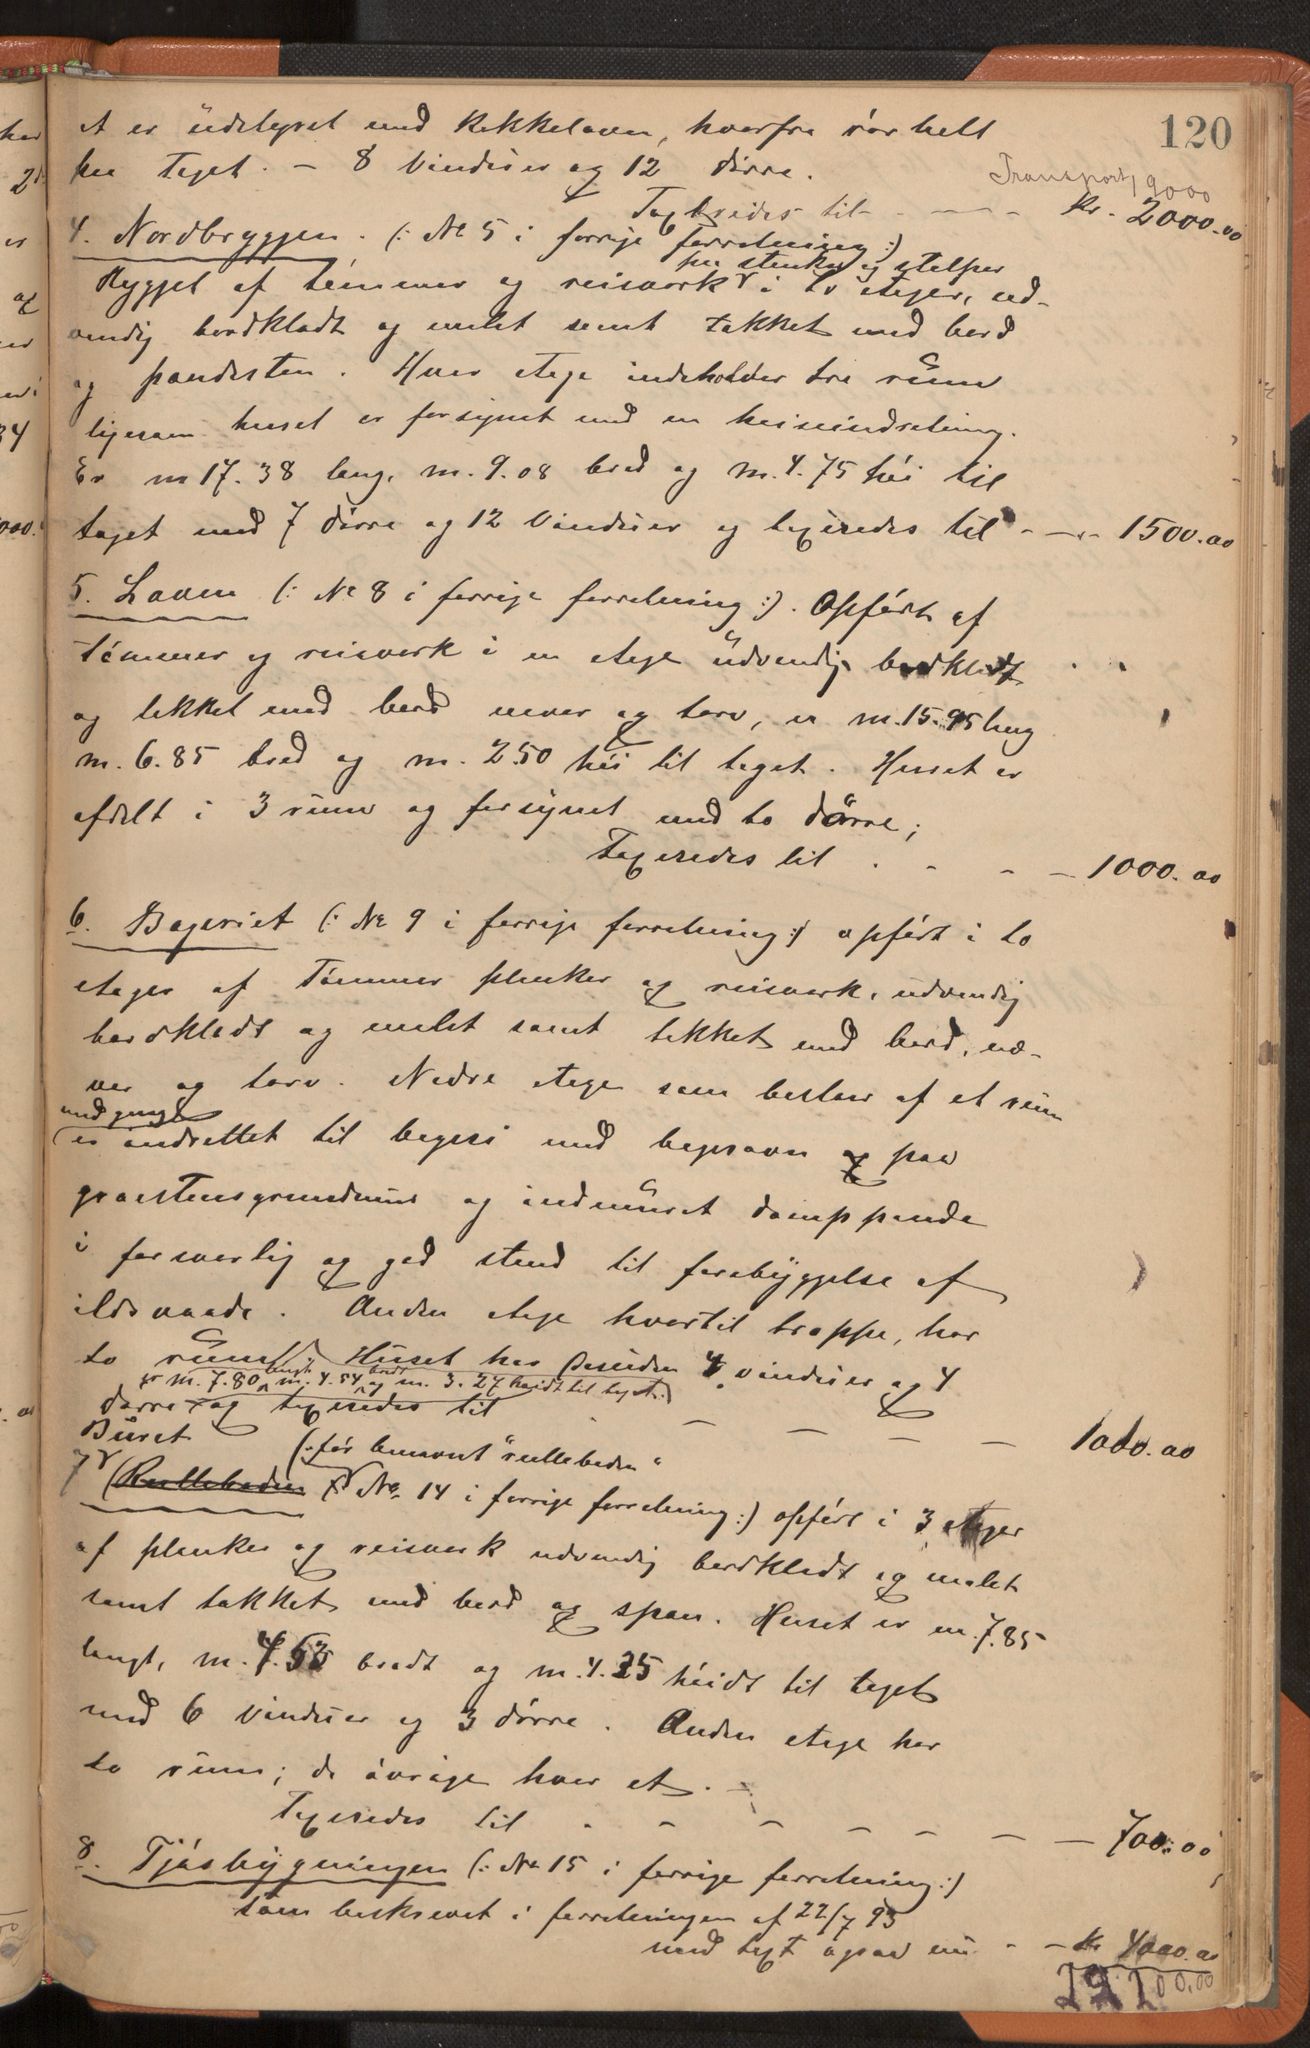 120
et er udstyret med Kakkelovn, hvorfra rør helt
paa taget. - 8 Vinduer og 12 dørre.
Transport 19000
Taxeredes til - - - - Kr. 2000.00
4. Nordbryggen. (: No 5 i forrige forretning :)
paa stenkar og stolper
Bygget af tømmer og reisverk i to etager, ud-
vendig bordklædt og malet samt takket med bord
og pandesten. Hver etage indeholder tre rum
ligesom huset er forsynet med en heiseindretning.
Er m 17.38 lang, m. 9.08 bred og m. 4.75 høi til
taget med 7 dørre og 12 Vinduer og taxeredes til - - - 1500.00
5. Laaven (: No 8 i forrige forretning :). Opført af
tømmer og reisverk i en etage udvendig bordklædt
og tækket med bord næver og torv, er m. 15.95 lang
m. 6.85 bred og m. 2.50 høi til taget. Huset er
afdelt i 3 rum og forsynet med to dørre;
Taxeredes til . - - - 1000.00
6. Bageriet (: No 9 i forrige forretning :) opført i to
etager af Tømmer planker og reisverk, udvendig
bordklædt og malet samt tækket med bord, næ-
ver og torv. Nedre etage som bestaar af et rum
med gang
er indrettet til bageri med bagerovn og paa
graastensgrundmur og indmuret damppande
i forsvarlig og god stand til forebyggelse af
ildsvaade. Anden etage hvortil trappe, har
to rum. Huset har desuden 4 vinduer og 4
er m. 7.80 langt m. 4.54 bredt og m. 3.27 høidt til taget.
dørre og taxeredes til - - - - 1000.00
Buret (: før benævnt "rulleboden"
7 Rulleboden No. 14 i forrige forretning :) opført i 3 etager
af planker og reisverk udvendig bordklædt og malet
samt takket med bord og spon. Huset er m. 7.85
langt, m. 4.53 bredt og m. 4.25 høidt til taget
med 6 Vinduer og 3 dørre. Anden etage har
to rum; de øvrige hver et. -
Taxeredes til . - - - - - - 700.00
8. Fjøsbygningen (: No 15 i forrige forretning :)
som beskrevet i forretningen af 22/7 93
med taxt ogsaa nu - - Kr 4000.00
29200.00